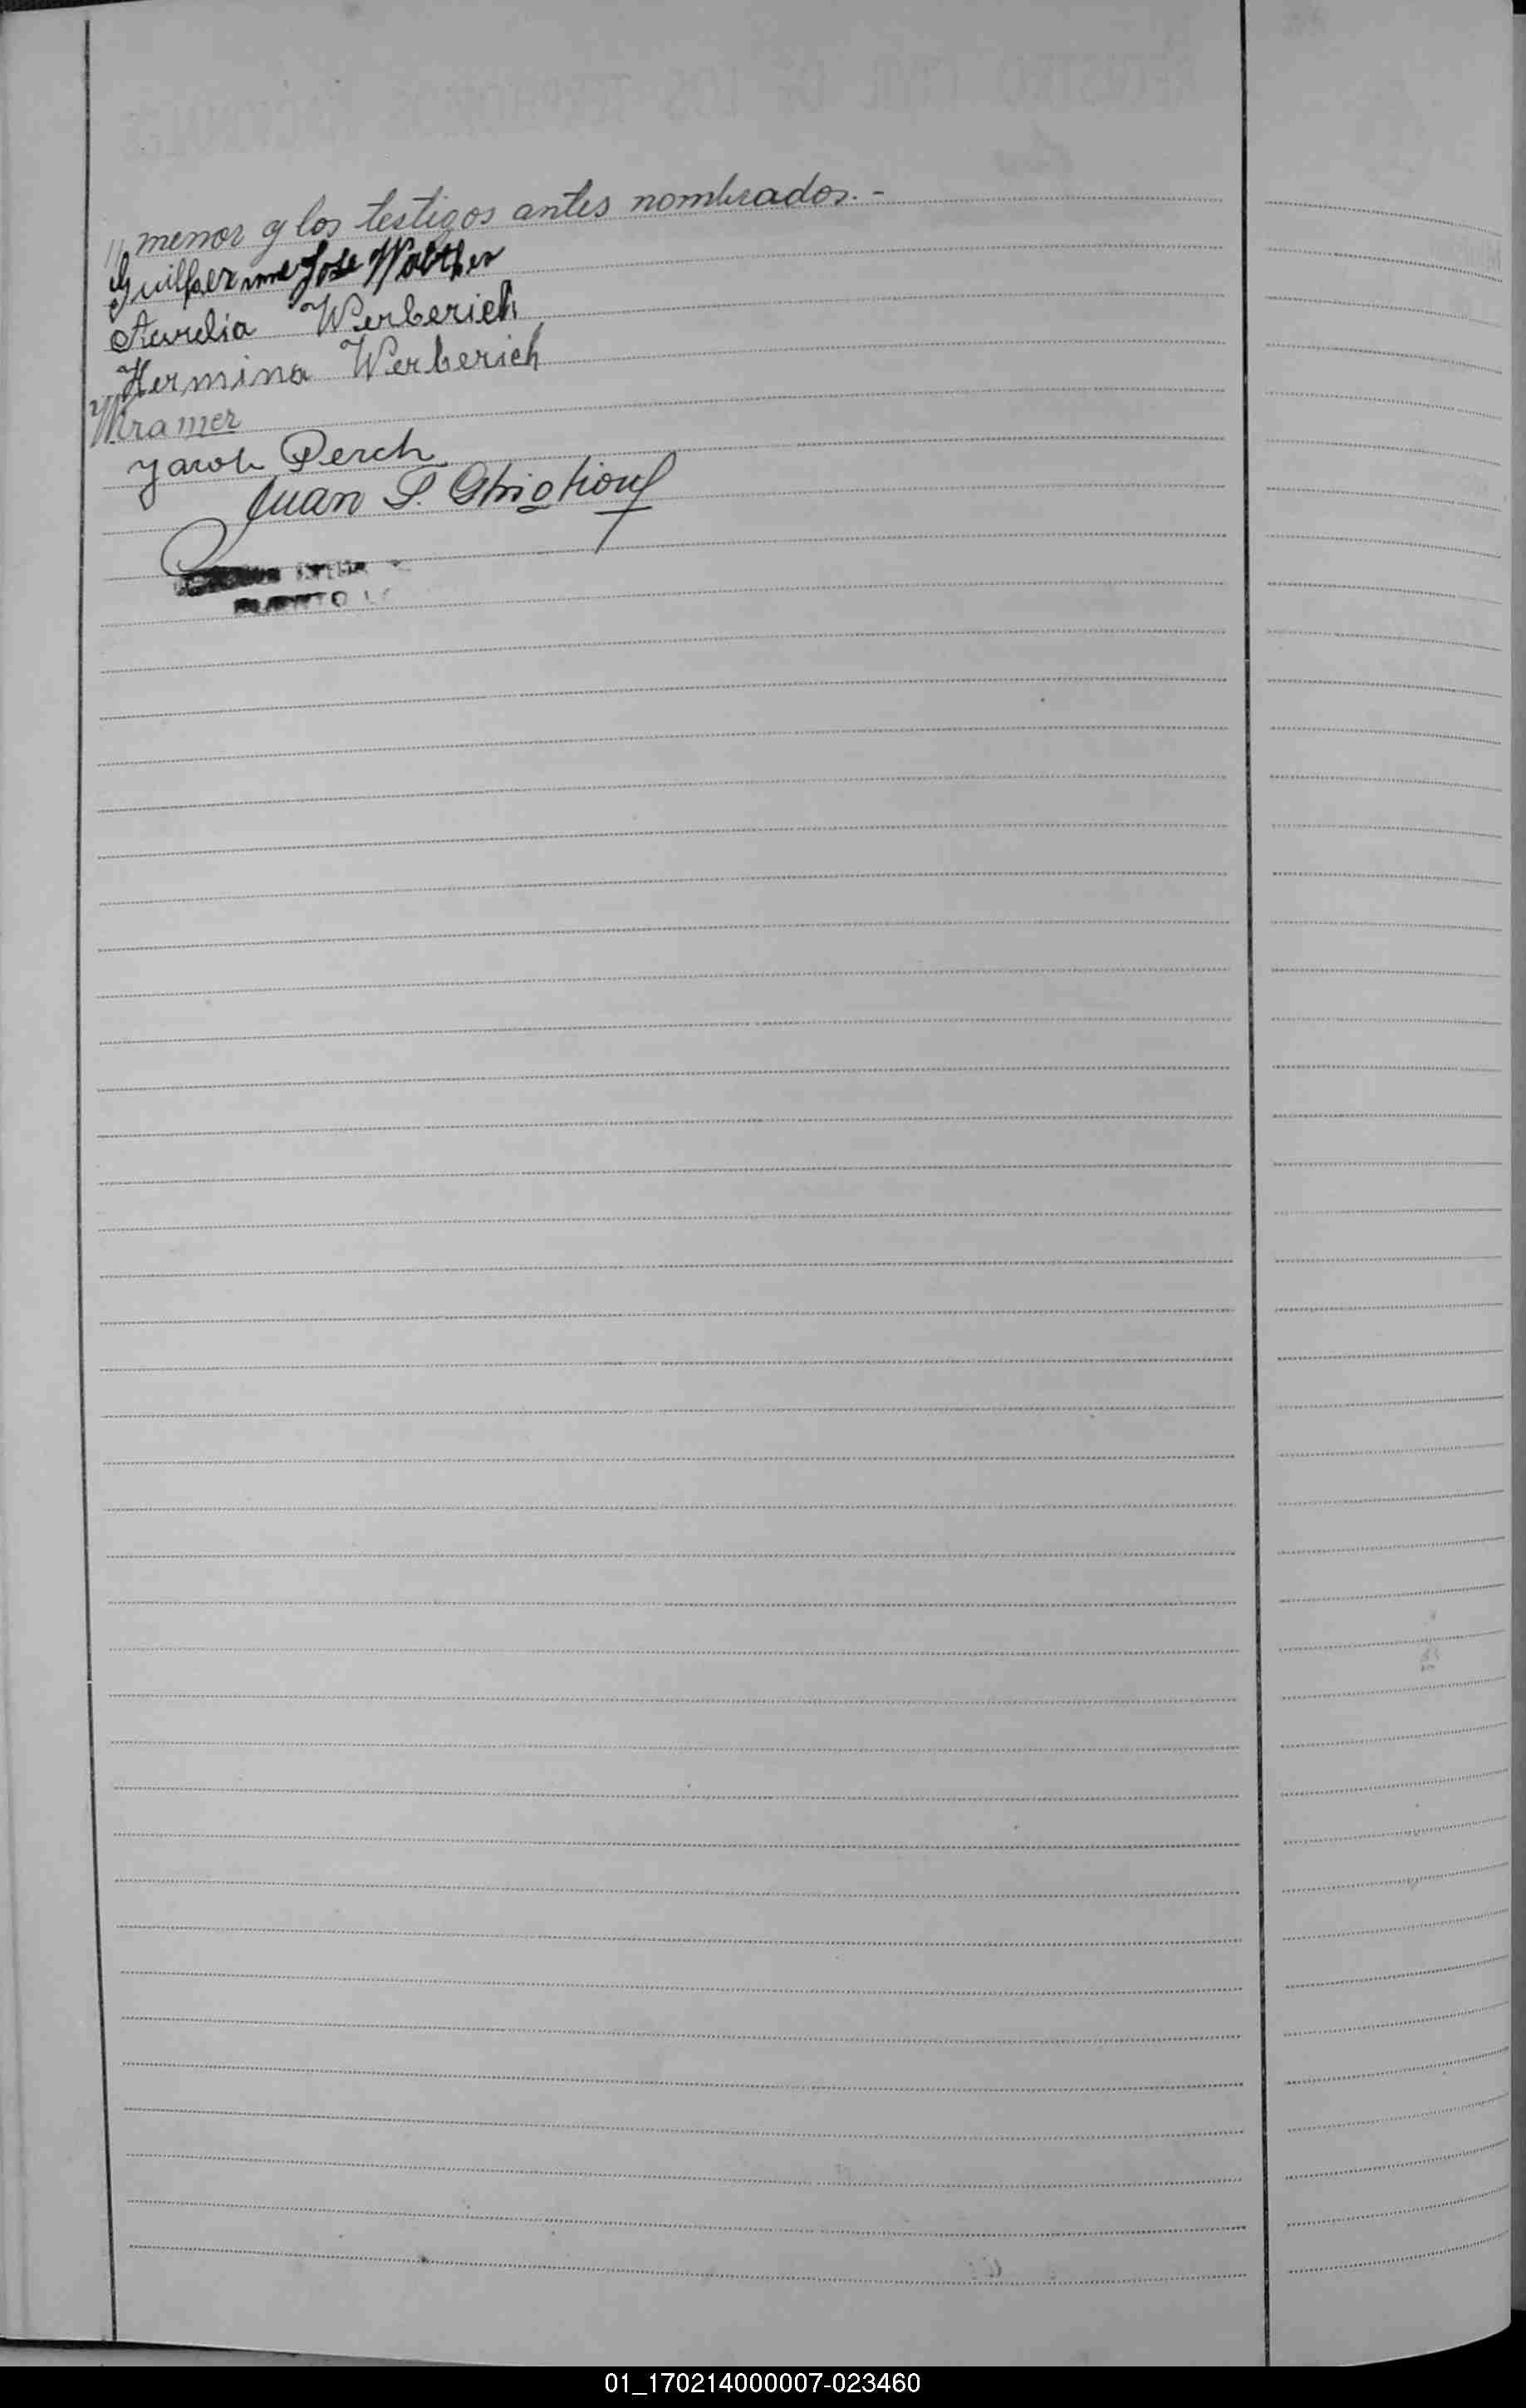 // menor y los testigos antes nombrados.-
Guilherme Jose Walther
Aurelia Werberich
Hermina Werberich
Kramer
Jacob Perch
Juan S.
01_170214000007-023460